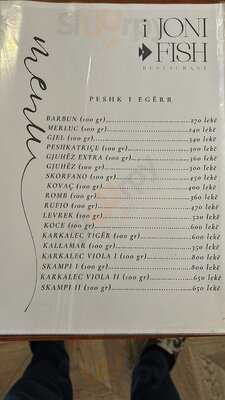 menu
i JONI
FISH
RESTAURANT
PESHK I EGËRR
BARBUN (100 gr) 270 lekë
MERLUC (100 gr) 240 lekë
GJEL (100 gr) 340 lekë
PESHKATRIÇE (100 gr) 300 lekë
GJUHËZ EXTRA (100 gr) 360 lekë
GJUHËZ (100 gr) 300 lekë
SKORFANO (100 gr) 450 lekë
KOVAÇ (100 gr) 400 lekë
ROMB (100 gr) 360 lekë
RUFJO (100 gr) 470 lekë
LEVREK (100 gr) 520 lekë
KOCE (100 gr) 600 lekë
KARKALEC TIGËR (100 gr) 600 lekë
KALLAMAR (100 gr) 350 lekë
KARKALEC VIOLA I (100 gr) 800 lekë
SKAMPI I (100 gr) 800 lekë
KARKALEC VIOLA II (100 gr) 650 lekë
SKAMPI II (100 gr) 650 lekë